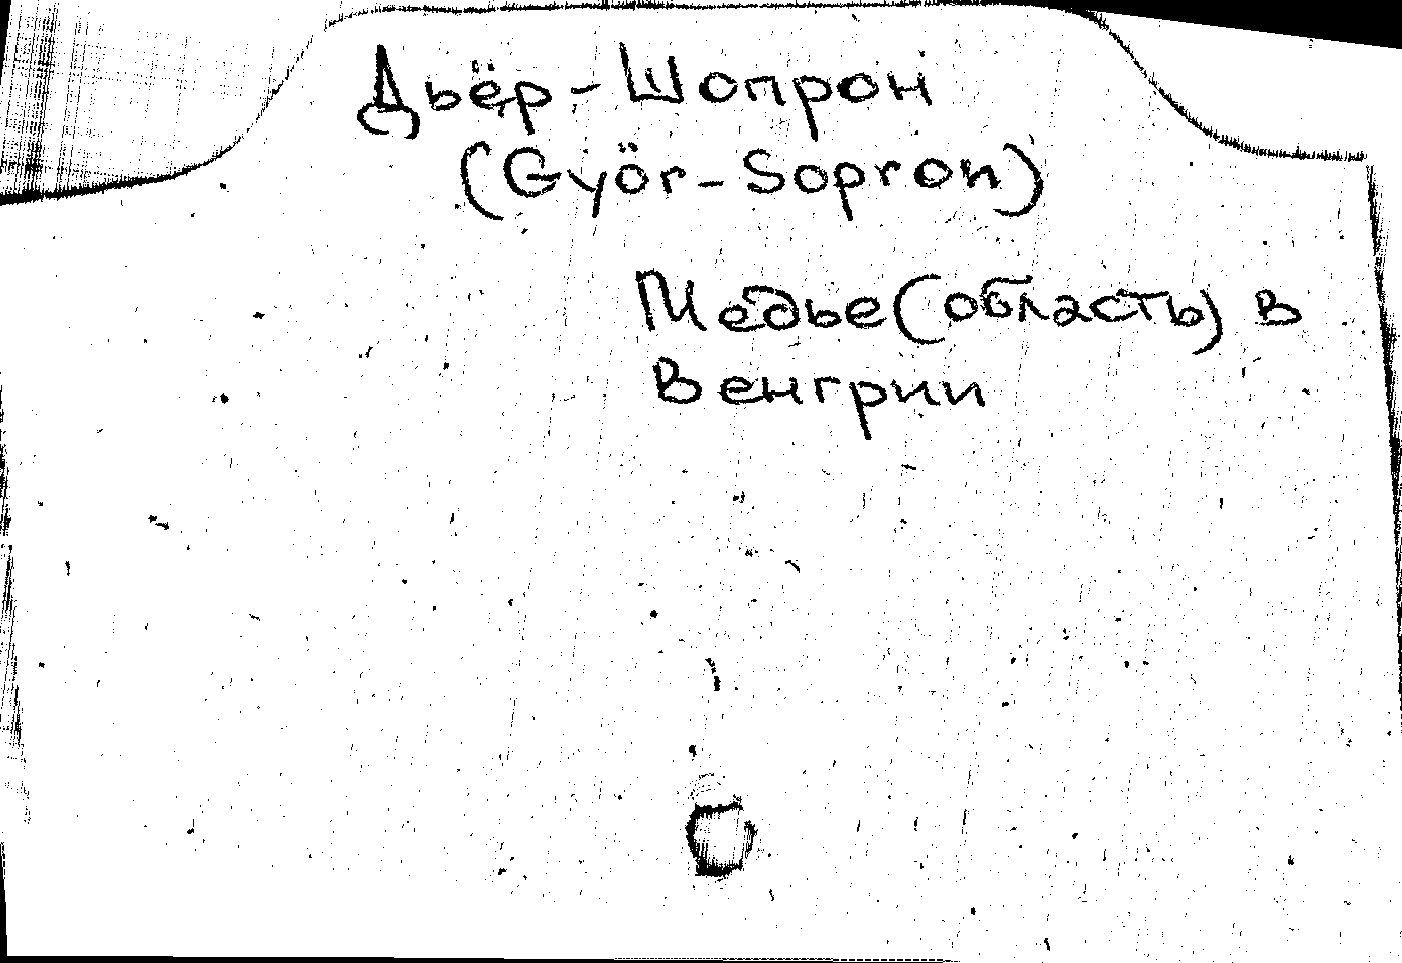 Дьёр-Шопрон
(Györ-Sopron)
Медье (область) в
Венгрии